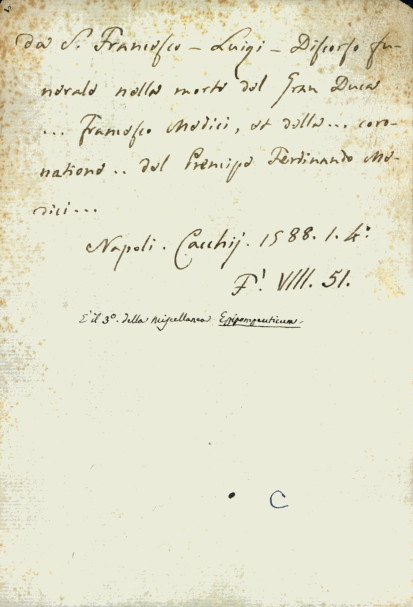 da S. Francesco - Luigi - Discorso fu-
nerale nella morte del Gran Duca
... Francesco Medici, et della... coro-
natione .. del Prencipe Ferdinando Me-
dici...
Napoli. Cacchij. 1588. 1. 4º.
F.' VIII. 51.
È il 3º. della Miscellanea Epipompeuticum.
C